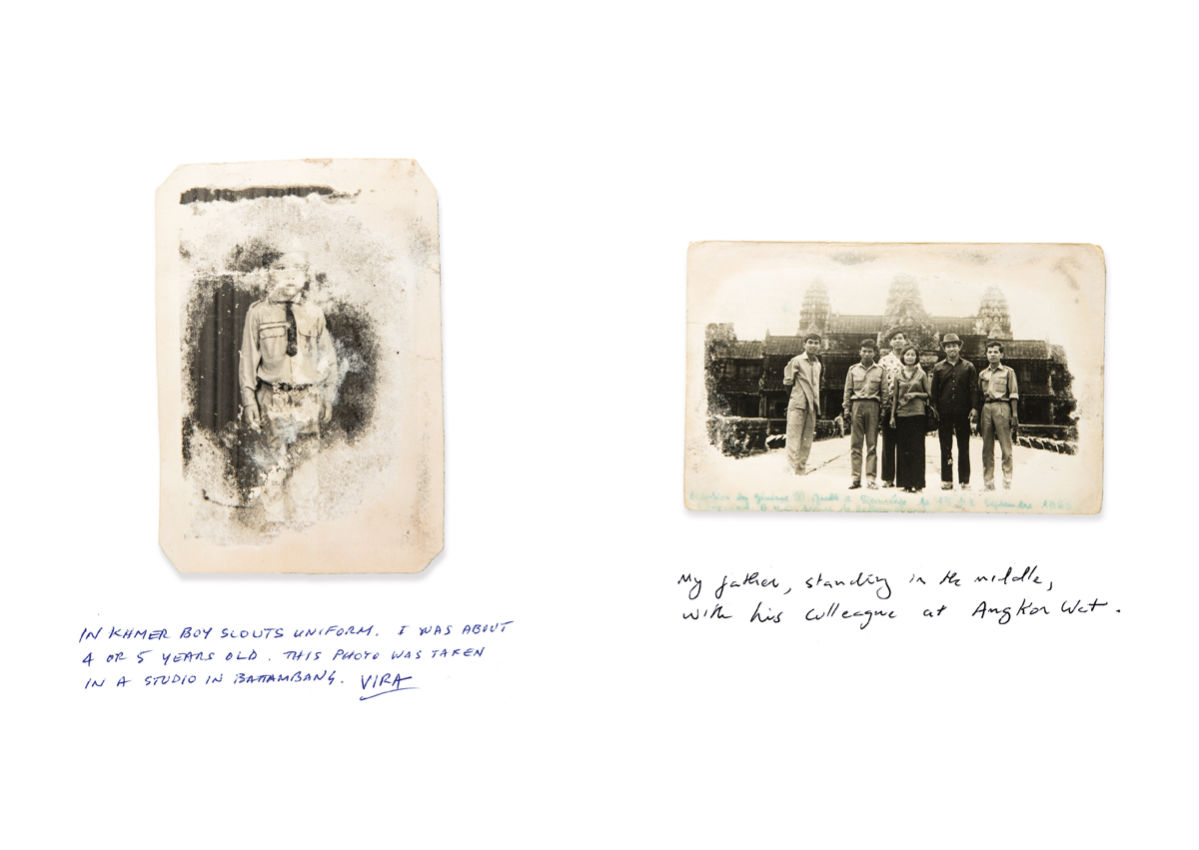 IN KHMER BOY SCOUTS UNIFORM. I WAS ABOUT
4 OR 5 YEARS OLD. THIS PHOTO WAS TAKEN
IN A STUDIO IN BATTAMBANG. VIRA
Septembre
My father, standing in the middle,
with his colleague at Angkor Wat.